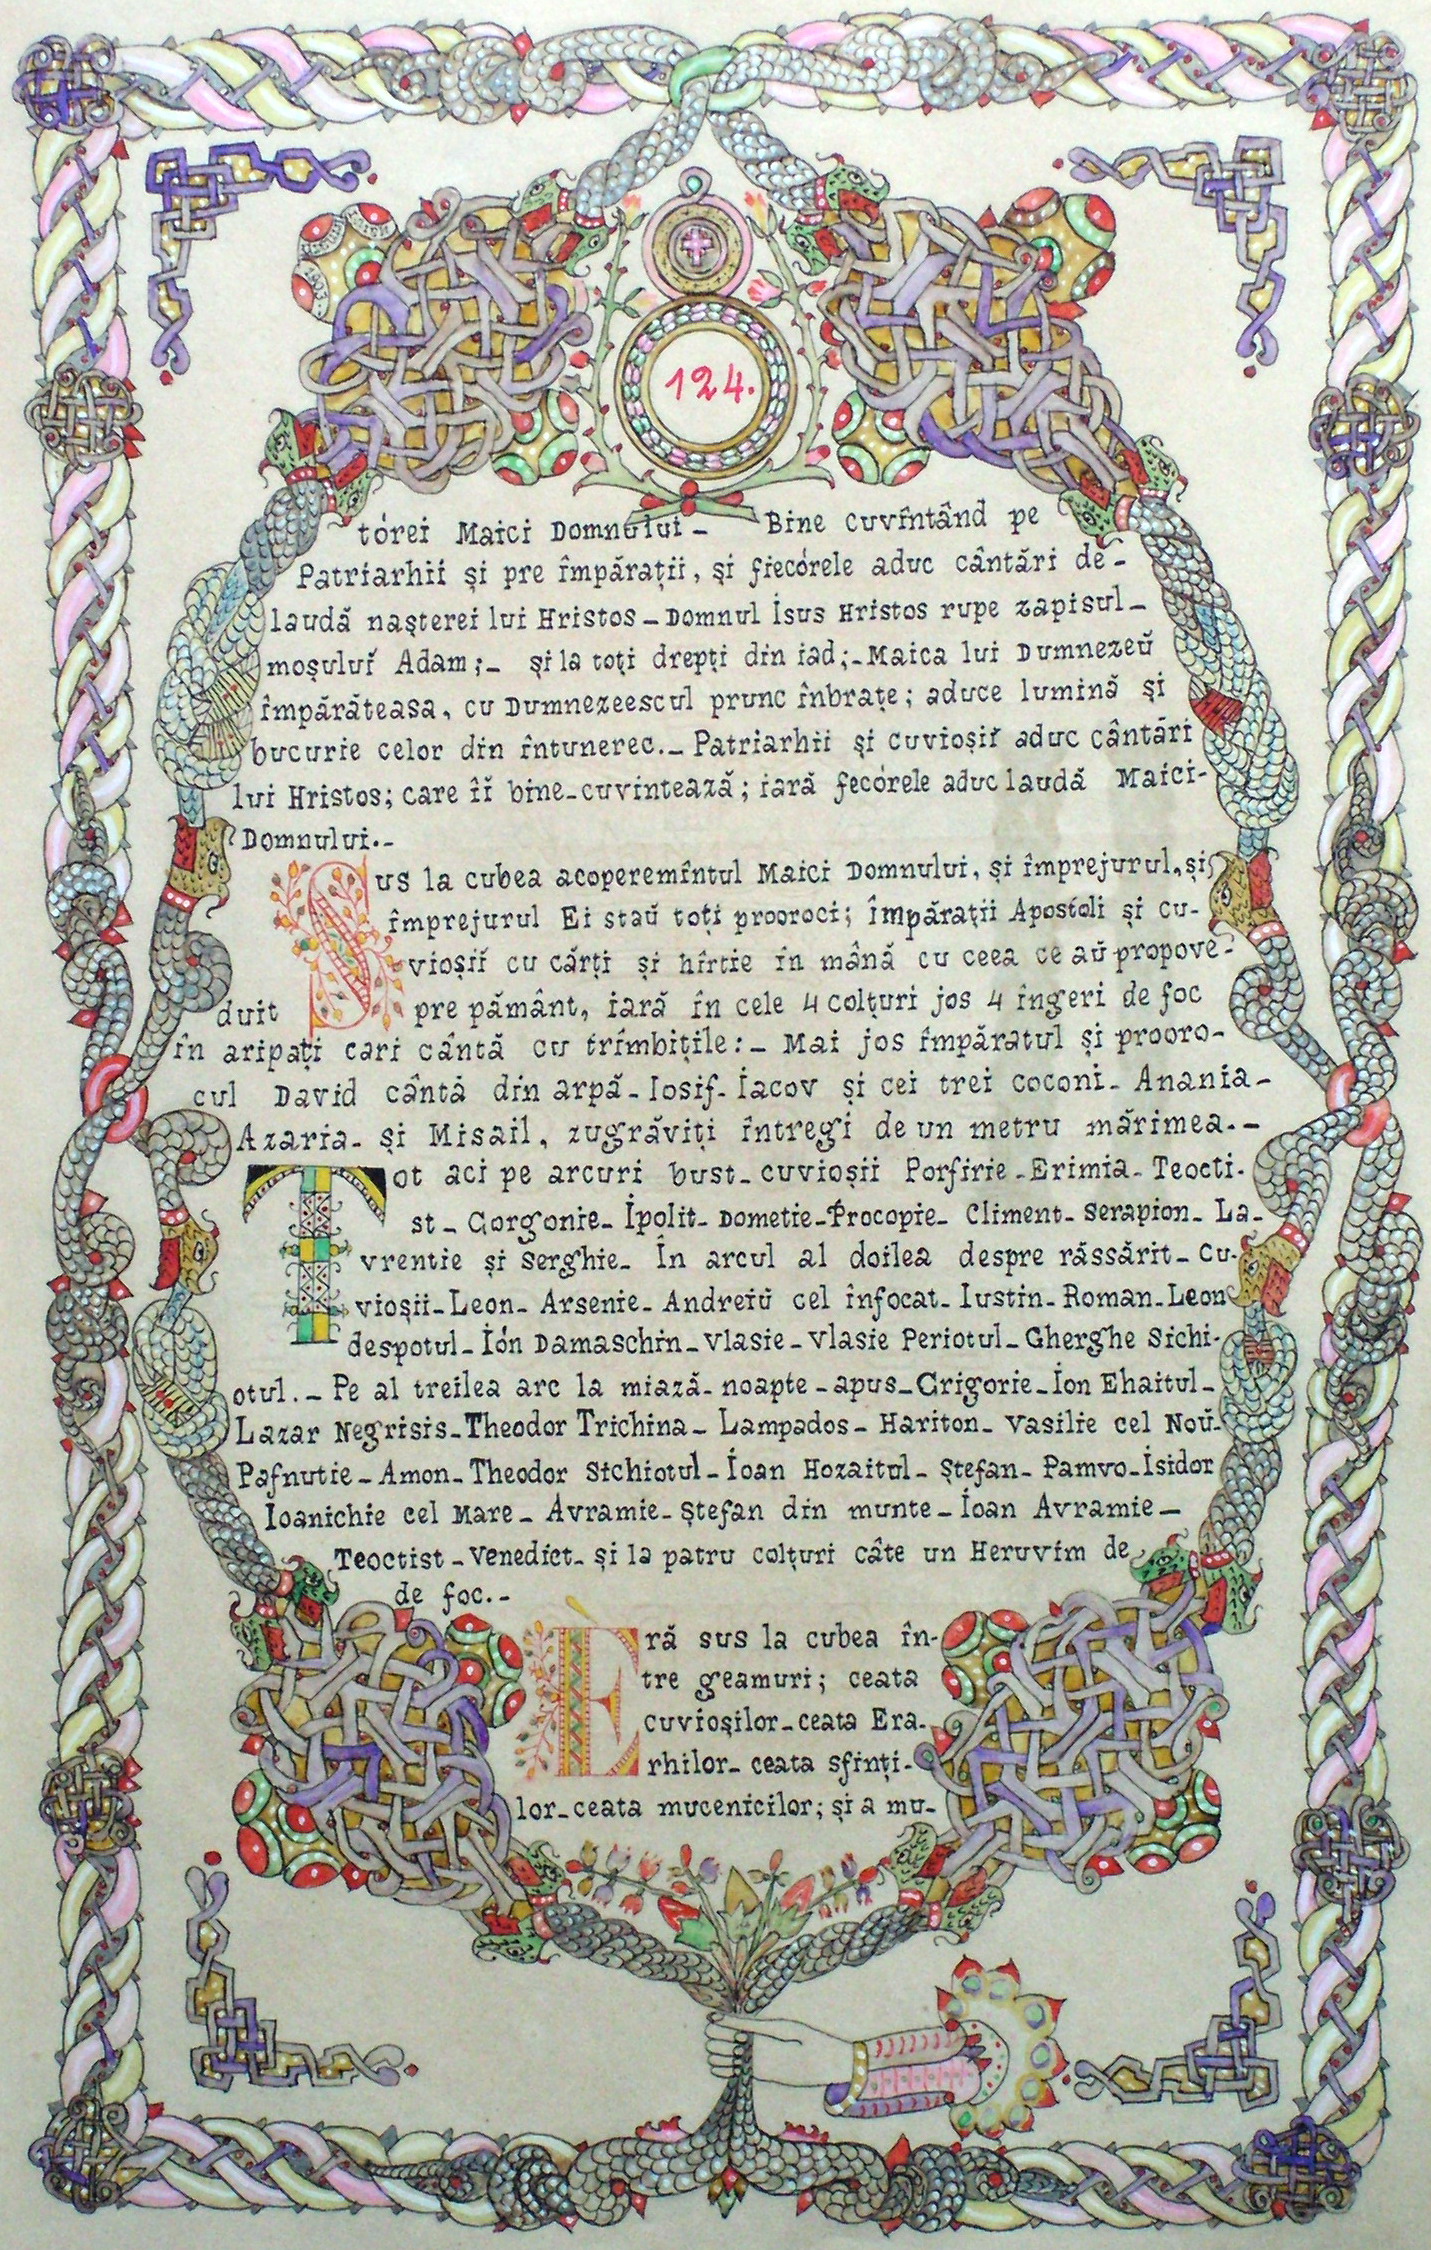 124.
1903
tórei Maici Domnului – Bine cuvîntând pe
Patriarhii și pre împărații, și fiecórele aduc cântări de-
laudă nașterei lui Hristos – Domnul Isus Hristos rupe zapisul –
moșului Adam; – și la toți drepți din iad; – Maica lui Dumnezeŭ
împărăteasa, cu Dumnezeescul prunc înbrațe; aduce lumină și
bucurie celor din întunerec. – Patriarhii și cuvioșii aduc cântări
lui Hristos; care îĭ bine-cuvintează; iară fecórele aduc laudă Maici-
Domnului. –
Sus la cubea acoperemîntul Maici Domnului, și împrejurul, și
împrejurul Ei staŭ toți prooroci; împărații Apostoli și cu-
vioșii cu cărți și hîrtie în mână cu ceea ce aŭ propove-
duit pre pământ, iară în cele 4 colțuri jos 4 îngeri de foc
în aripați cari cântă cu trîmbițile: – Mai jos împăratul și prooro-
cul David cântă din arpă – Iosif – Iacov și cei trei coconi – Anania –
Azaria – și Misail, zugrăviți întregi de un metru mărimea. –
Tot aci pe arcuri bust – cuvioșii Porfirie – Erimia – Teocti-
st – Gorgonie – Ipolit – Dometie – Procopie – Climent – Serapion – La-
vrentie și Serghie – În arcul al doilea despre răssărit – Cu-
vioșii – Leon – Arsenie – Andreiŭ cel înfocat – Iustin – Roman – Leon
despotul – Ión Damaschin – Vlasie – Vlasie Periotul – Gherghe Sichi-
otul. – Pe al treilea arc la miază-noapte – apus – Grigorie – Ion Ehaitul –
Lazar Negrisis – Theodor Trichina – Lampados – Hariton – Vasilie cel Noŭ –
Pafnutie – Amon – Theodor Sichiotul – Ioan Hozaitul – Ștefan – Pamvo – Isidor
Ioanichie cel Mare – Avramie – Ștefan din munte – Ioan Avramie –
Teoctist – Venedict – și la patru colțuri câte un Heruvim de
de foc. –
Èră sus la cubea în-
tre geamuri; ceata
cuvioșilor – ceata Era-
rhilor – ceata sfinți-
lor – ceata mucenicilor; și a mu-